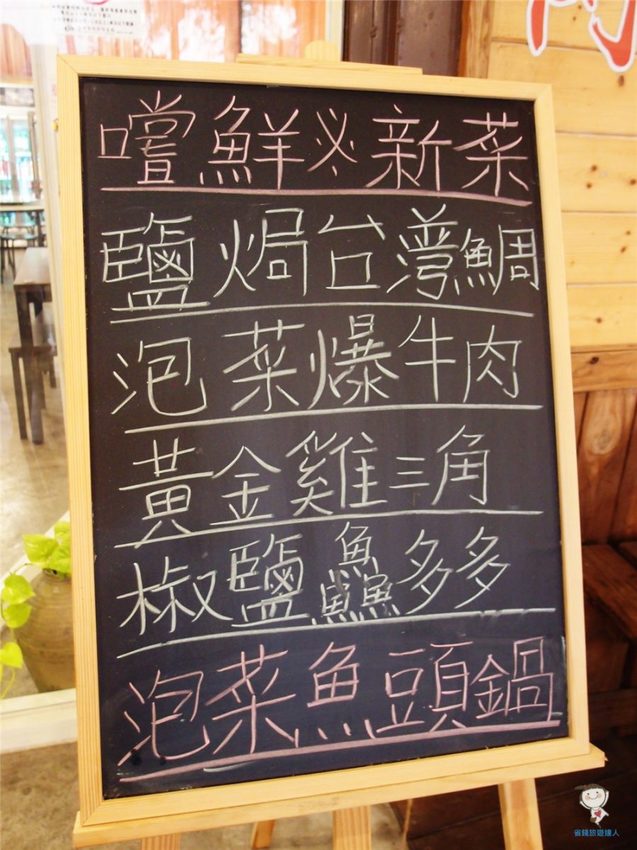 嚐鮮冬新菜
鹽焗台灣鯛
泡菜爆牛肉
黃金雞三角
椒鹽鱻多多
泡菜魚頭鍋
省錢旅遊達人